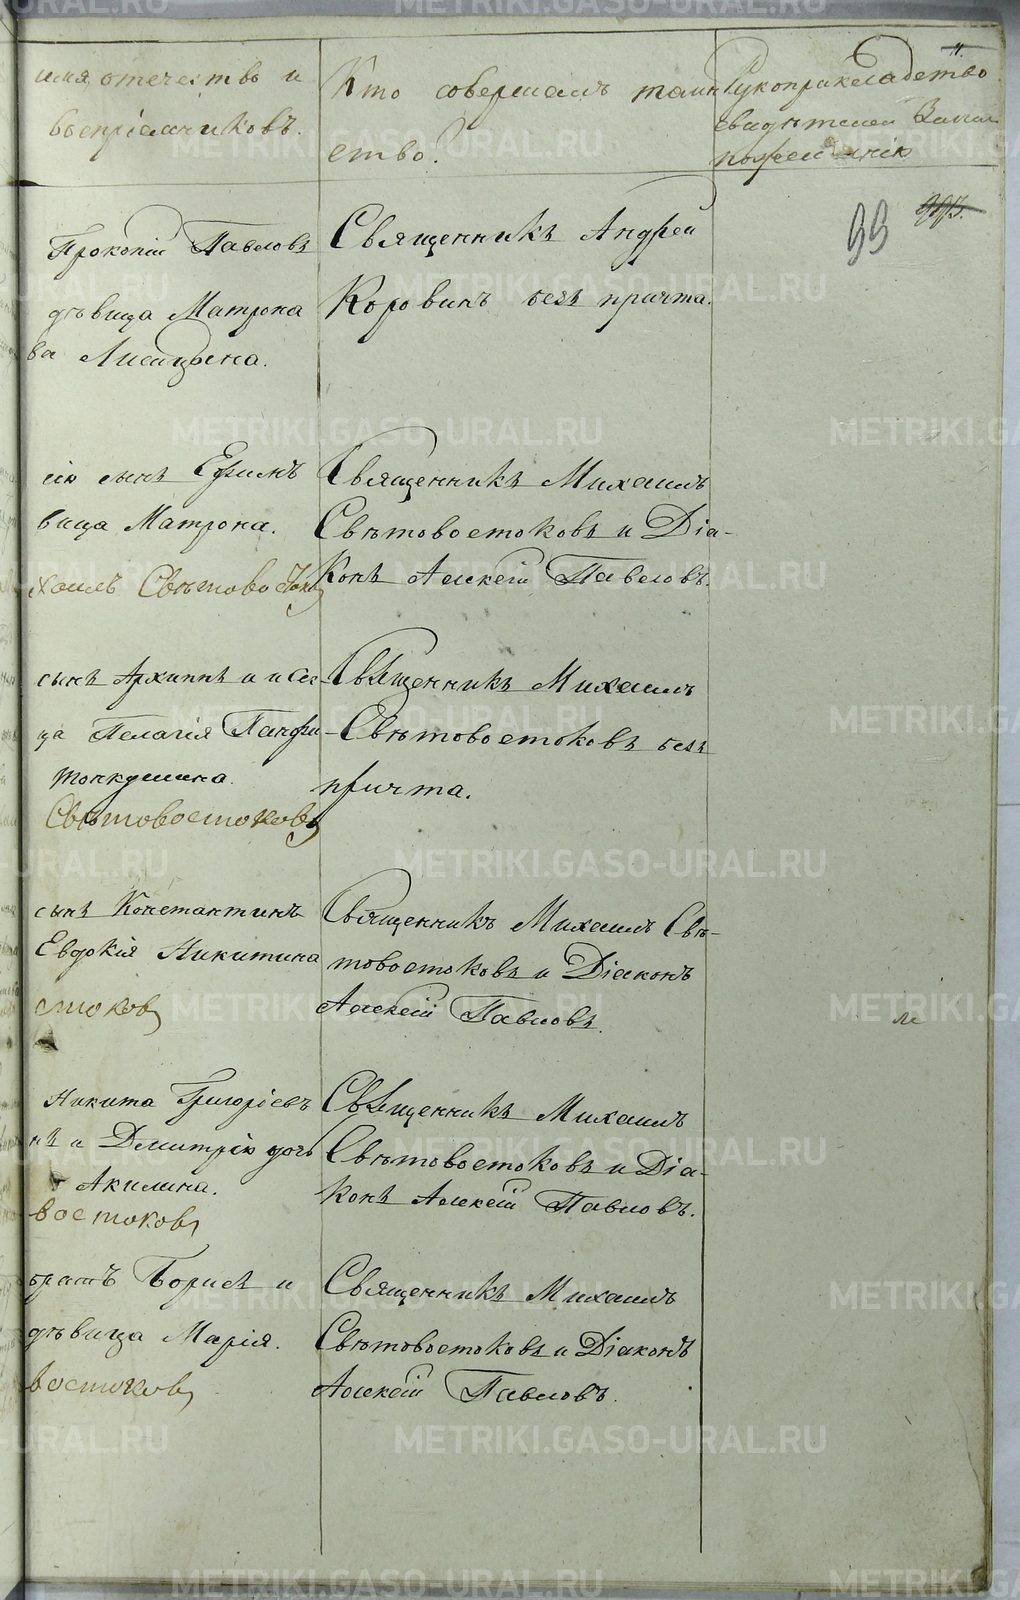 имя, отечество и
воспріемниковъ.
Кто совершалъ таин
ство?
Рукоприкладство
свидѣтелей Записи
по желанію
99
Прокопій Павловъ
дѣвица Матрона
ва Лисицына.
Священникъ Андрей
Коровинъ безъ причта.
сынъ Ефимъ
вица Матрона.
хаилъ Свѣтовосток
Священникъ Михаилъ
Свѣтовостоковъ и Діа-
конъ Алексій Павловъ.
сынъ Архиппъ и
ца Пелагія Панфи
Свѣтовостоковъ
Священникъ Михаилъ
Свѣтовостоковъ безъ
причта.
сынъ Константинъ
Евдокія Никитина
стоковъ
Священникъ Михаилъ Свѣ-
товостоковъ и Діаконъ
Алексій Павловъ.
Никита Григоріевъ
нъ и Димитрію дочь
Акилина.
востоковъ
Священникъ Михаилъ
Свѣтовостоковъ и Діа-
конъ Алексій Павловъ.
братъ Борисъ и
дѣвица Марія.
востоковъ
Священникъ Михаилъ
Свѣтовостоковъ и Діаконъ
Алексій Павловъ.
METRIKI.GASO-URAL.RU